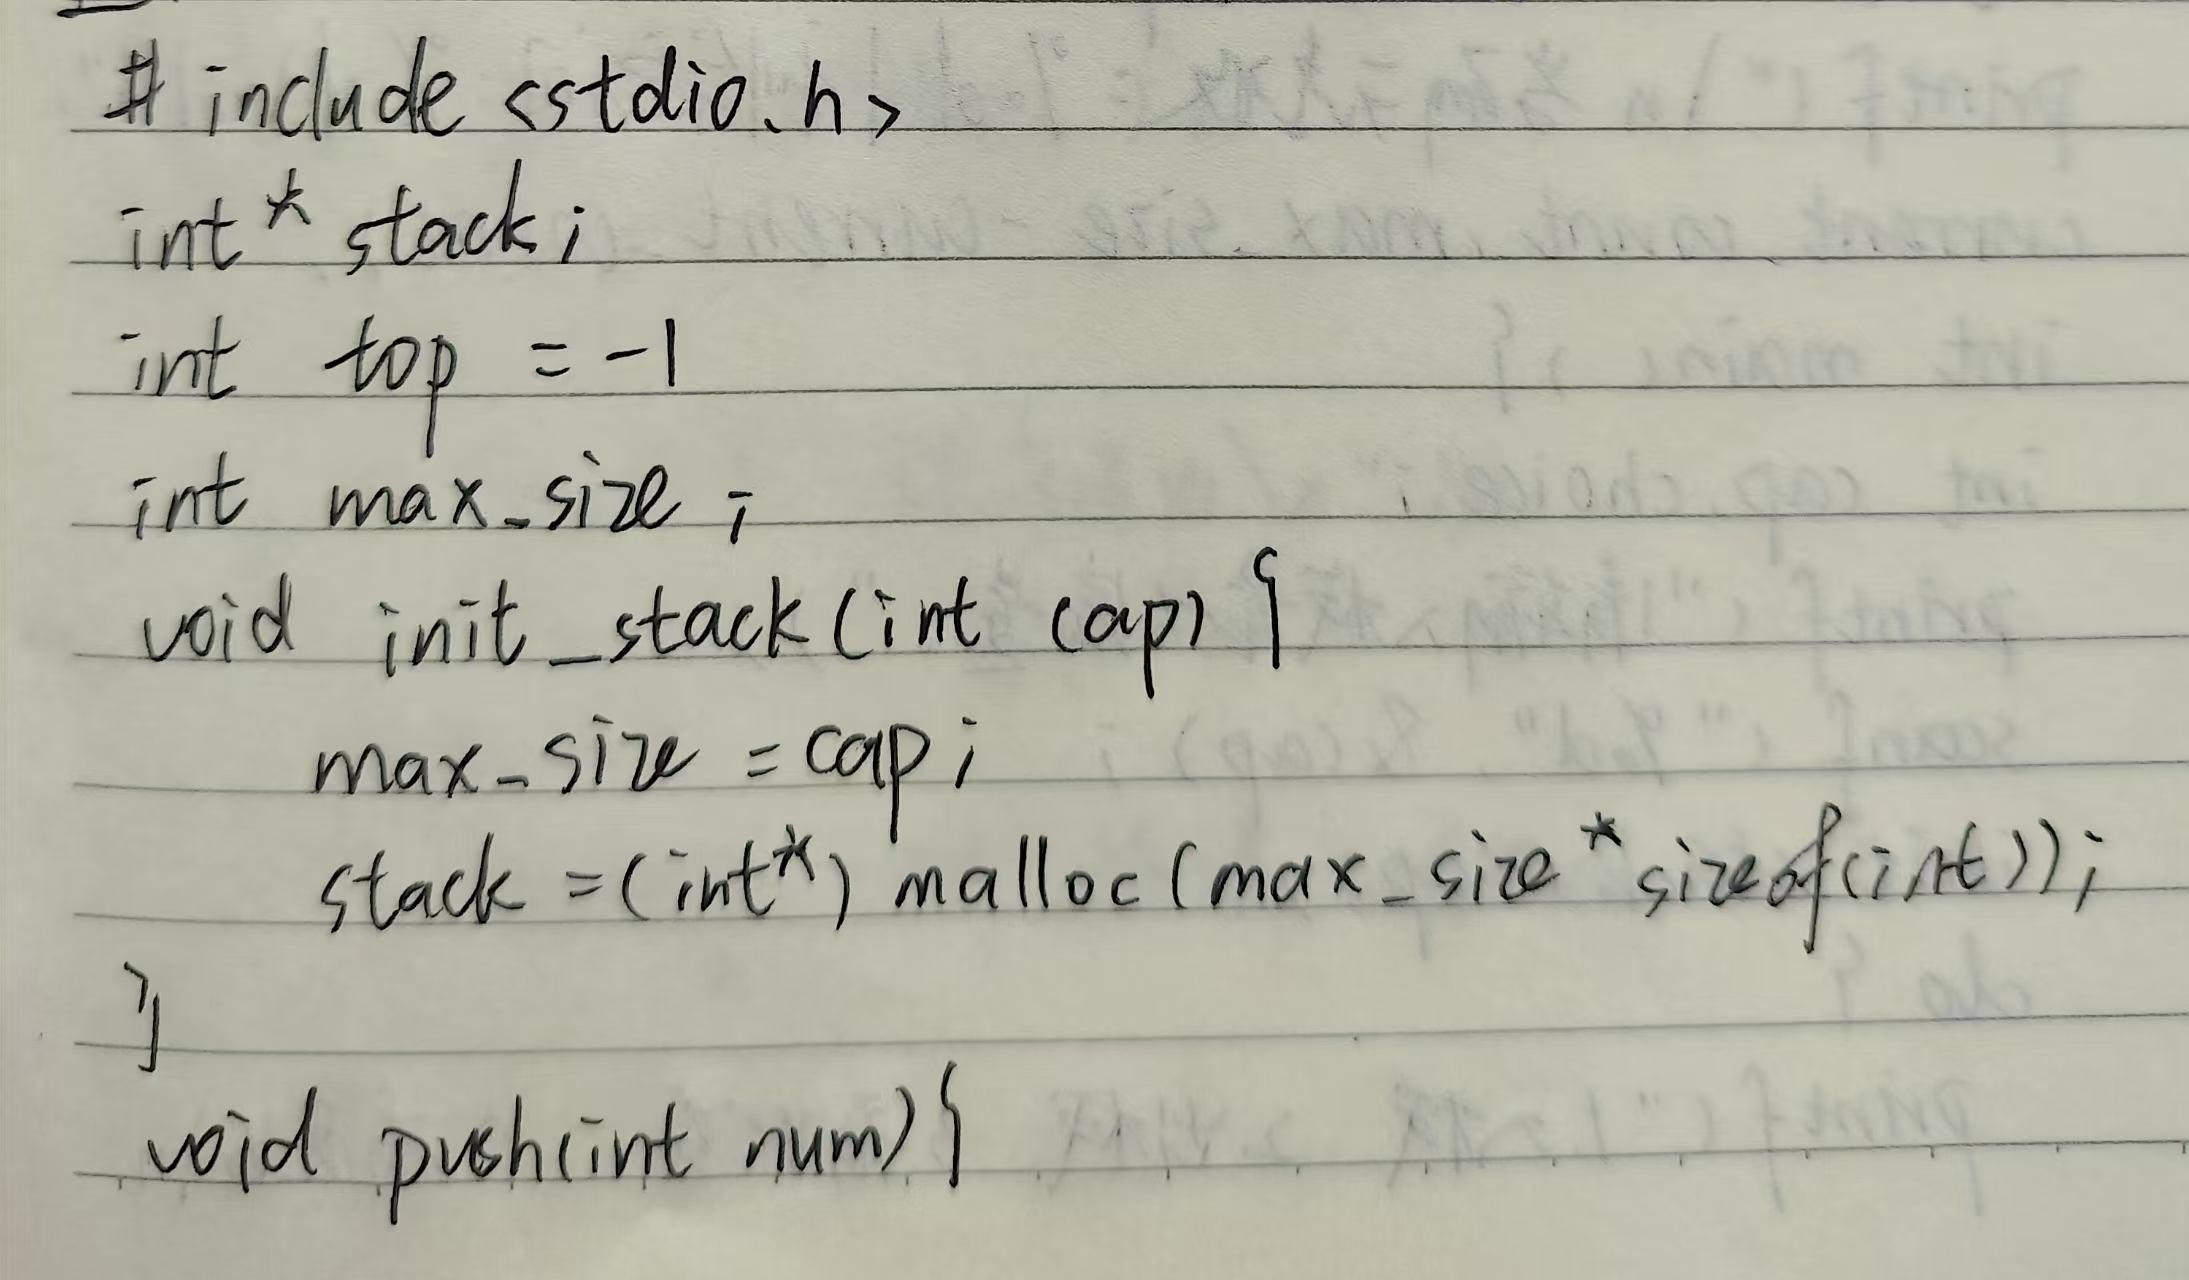 # include <stdio.h>
int* stack;
int top = -1
int max_size;
void init_stack(int cap) {
max_size = cap;
stack = (int*) malloc(max_size * sizeof(int));
}
void push(int num) {